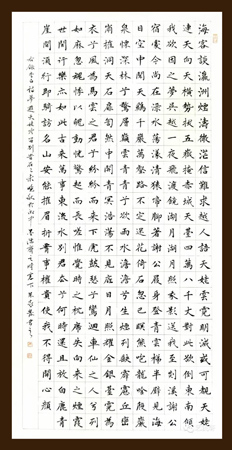 海客談瀛洲煙濤微茫信難求越人語天姥雲霓明滅或可覩天姥
連天向天橫勢拔五嶽掩赤城天臺四萬八千丈對此欲倒東南傾
我欲因之夢吳越一夜飛渡鏡湖月湖月照我影送我至剡溪謝公
宿處今尚在淥水蕩漾清猿啼腳著謝公屐身登青雲梯半壁見海
日空中聞天雞千巖萬壑路不定迷花倚石忽已暝熊咆龍吟殷巖
泉慄深林兮驚層巔雲青青兮欲雨水澹澹兮生煙列缺霹靂丘巒
崩摧洞天石扉訇然中開青冥浩蕩不見底日月照耀金銀臺霓為
衣兮風為馬雲之君兮紛紛而來下虎鼓瑟兮鸞迴車仙之人兮列
如麻忽魂悸以魄動怳驚起而長嗟惟覺時之枕席失向來之煙霞
世間行樂亦如此古來萬事東流水別君去兮何時還且放白鹿青
崖間須行即騎訪名山安能摧眉折腰事權貴使我不得開心顏
李白詩夢遊天姥吟留別